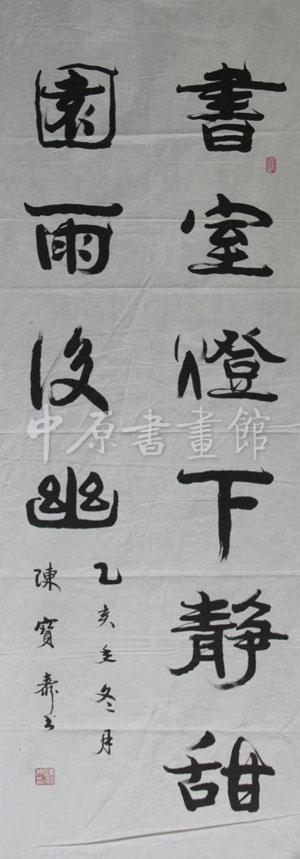 書室燈下靜甜
園雨後幽
乙亥年冬月
陳寶壽書
中原書畫館